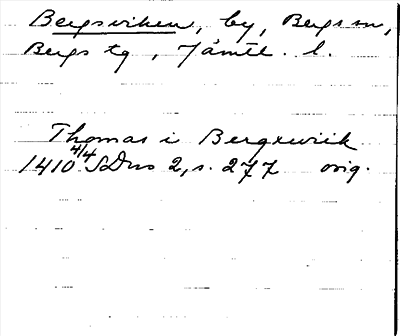 Bergsviken, by, Bergs sn,
Bergs tg, Jämtl. l.
Thomas i Bergxwiik
1410 4/4 SDns 2, s. 277 orig.